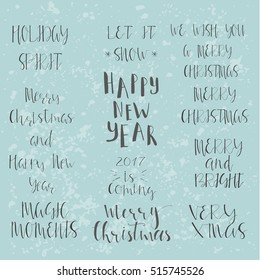 HOLIDAY
SPIRIT
Merry
Christmas
and
Happy New
Year
MAGIC
MOMENTS
LET IT
SNOW
HAPPY
NEW
YEAR
2017
Is
Coming
Merry
Christmas
WE WISH YOU
A MERRY
CHRISTMAS
MERRY
CHRISTMAS
MERRY
and
BRIGHT
VERY
XMAS
shutterstock
IMAGE ID: 515745526
www.shutterstock.com